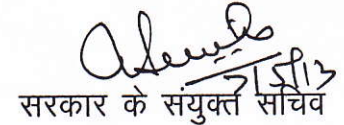 7/5/13
सरकार के संयुक्त सचिव